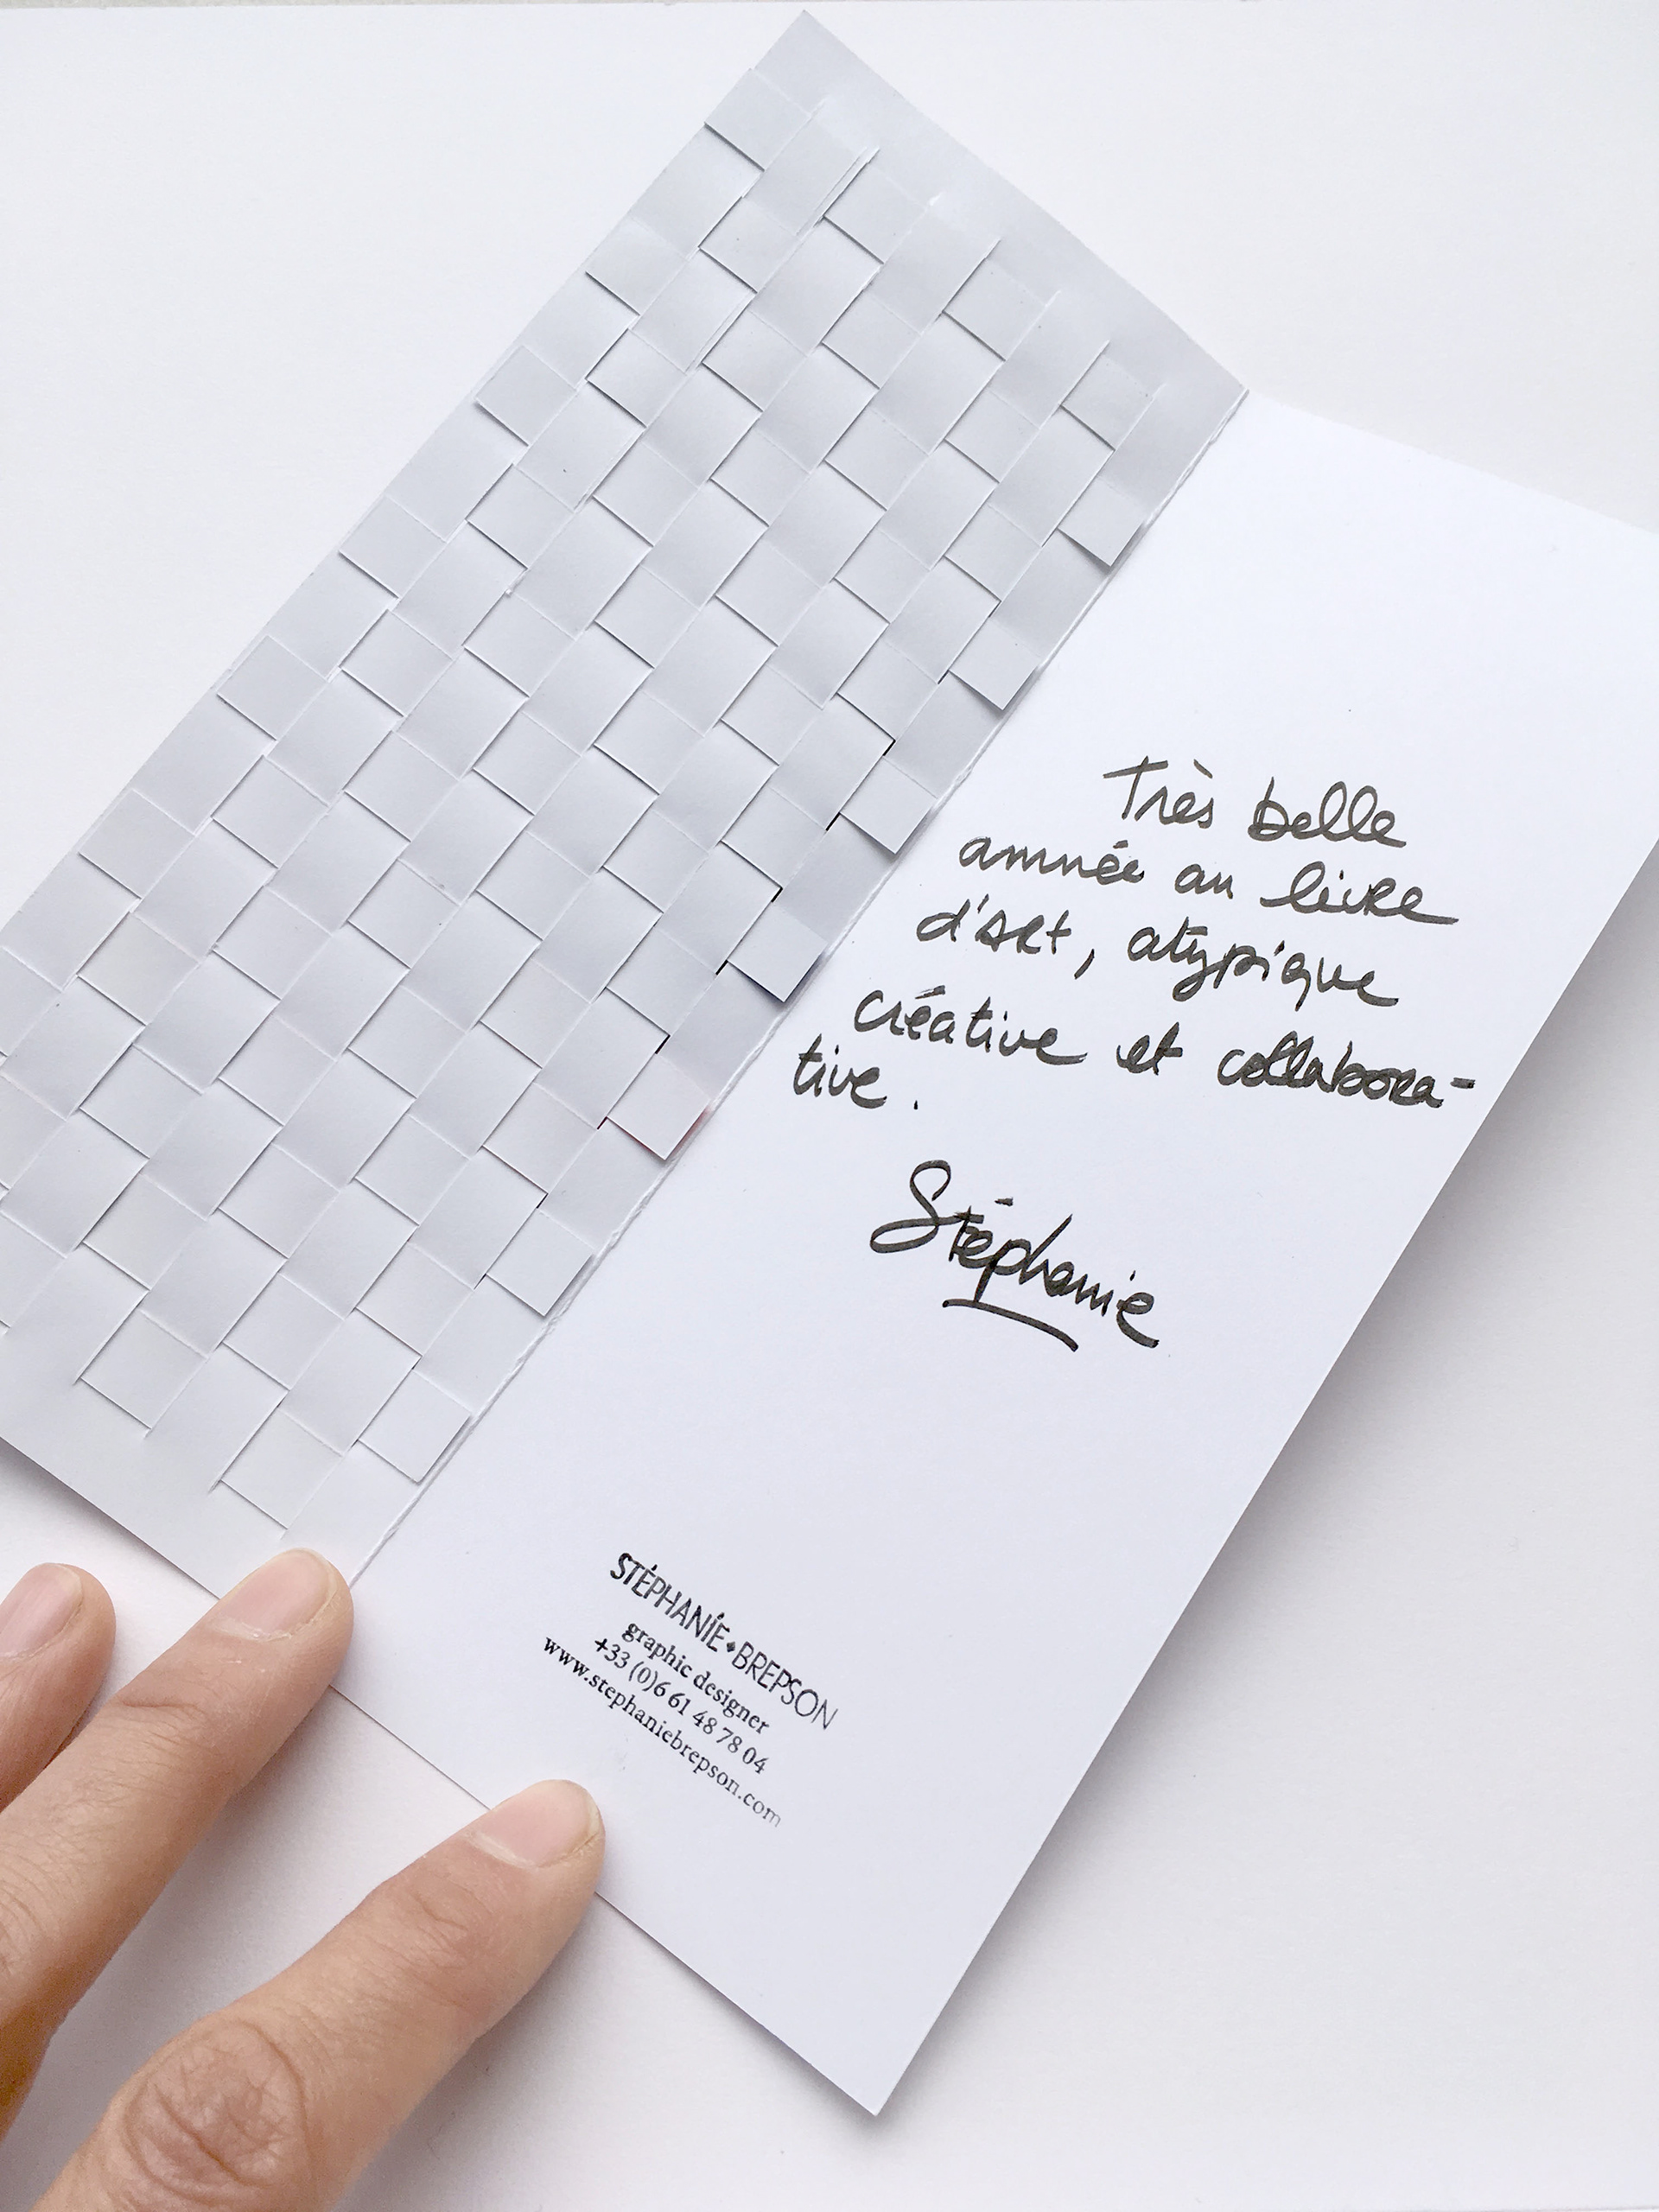 Très belle
année au livre
d'art, atypique
créative et collabora-
tive.
Stéphanie
STÉPHANÍE◆BREPSON
graphic designer
+33 (0)6 61 48 78 04
www.stephaniebrepson.com